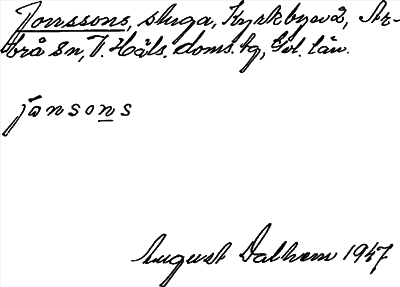 Jonssons, stuga, Kyrkbyn 2, Ar-
brå sn, V. Häls. doms. tg, Gvl. län.
jånsons
August Dalhem 1947